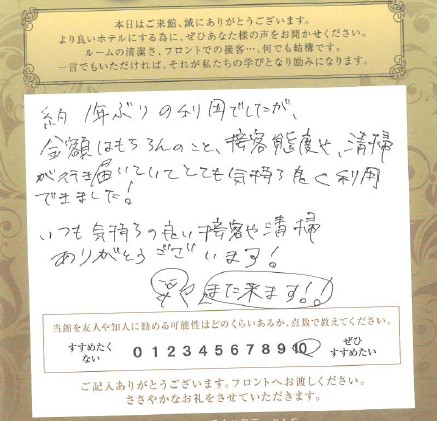 本日はご来館、誠にありがとうございます。
より良いホテルにする為に、ぜひあなた様の声をお聞かせください。
ルームの清潔さ、フロントでの接客…、何でも結構です。
一言でもいただければ、それが私たちの学びとなり励みになります。
約1年ぶりの利用でしたが、
金額はもちろんのこと、接客態度や、清掃
が行き届いていてとても気持ち良く利用
できました!
いつも気持ちの良い接客や清掃
ありがとうございます!
また来ます!!
当館を友人や知人に勧める可能性はどのくらいあるか、点数で教えてください。
すすめたくない 0 1 2 3 4 5 6 7 8 9 10 ぜひすすめたい
ご記入ありがとうございます。フロントへお渡しください。
ささやかなお礼をさせていただきます。